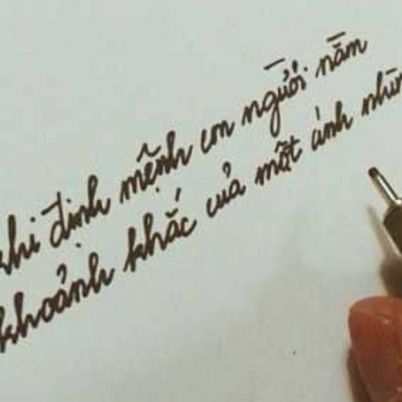 khi định mệnh con người nằm
khoảnh khắc của một ánh nhìn